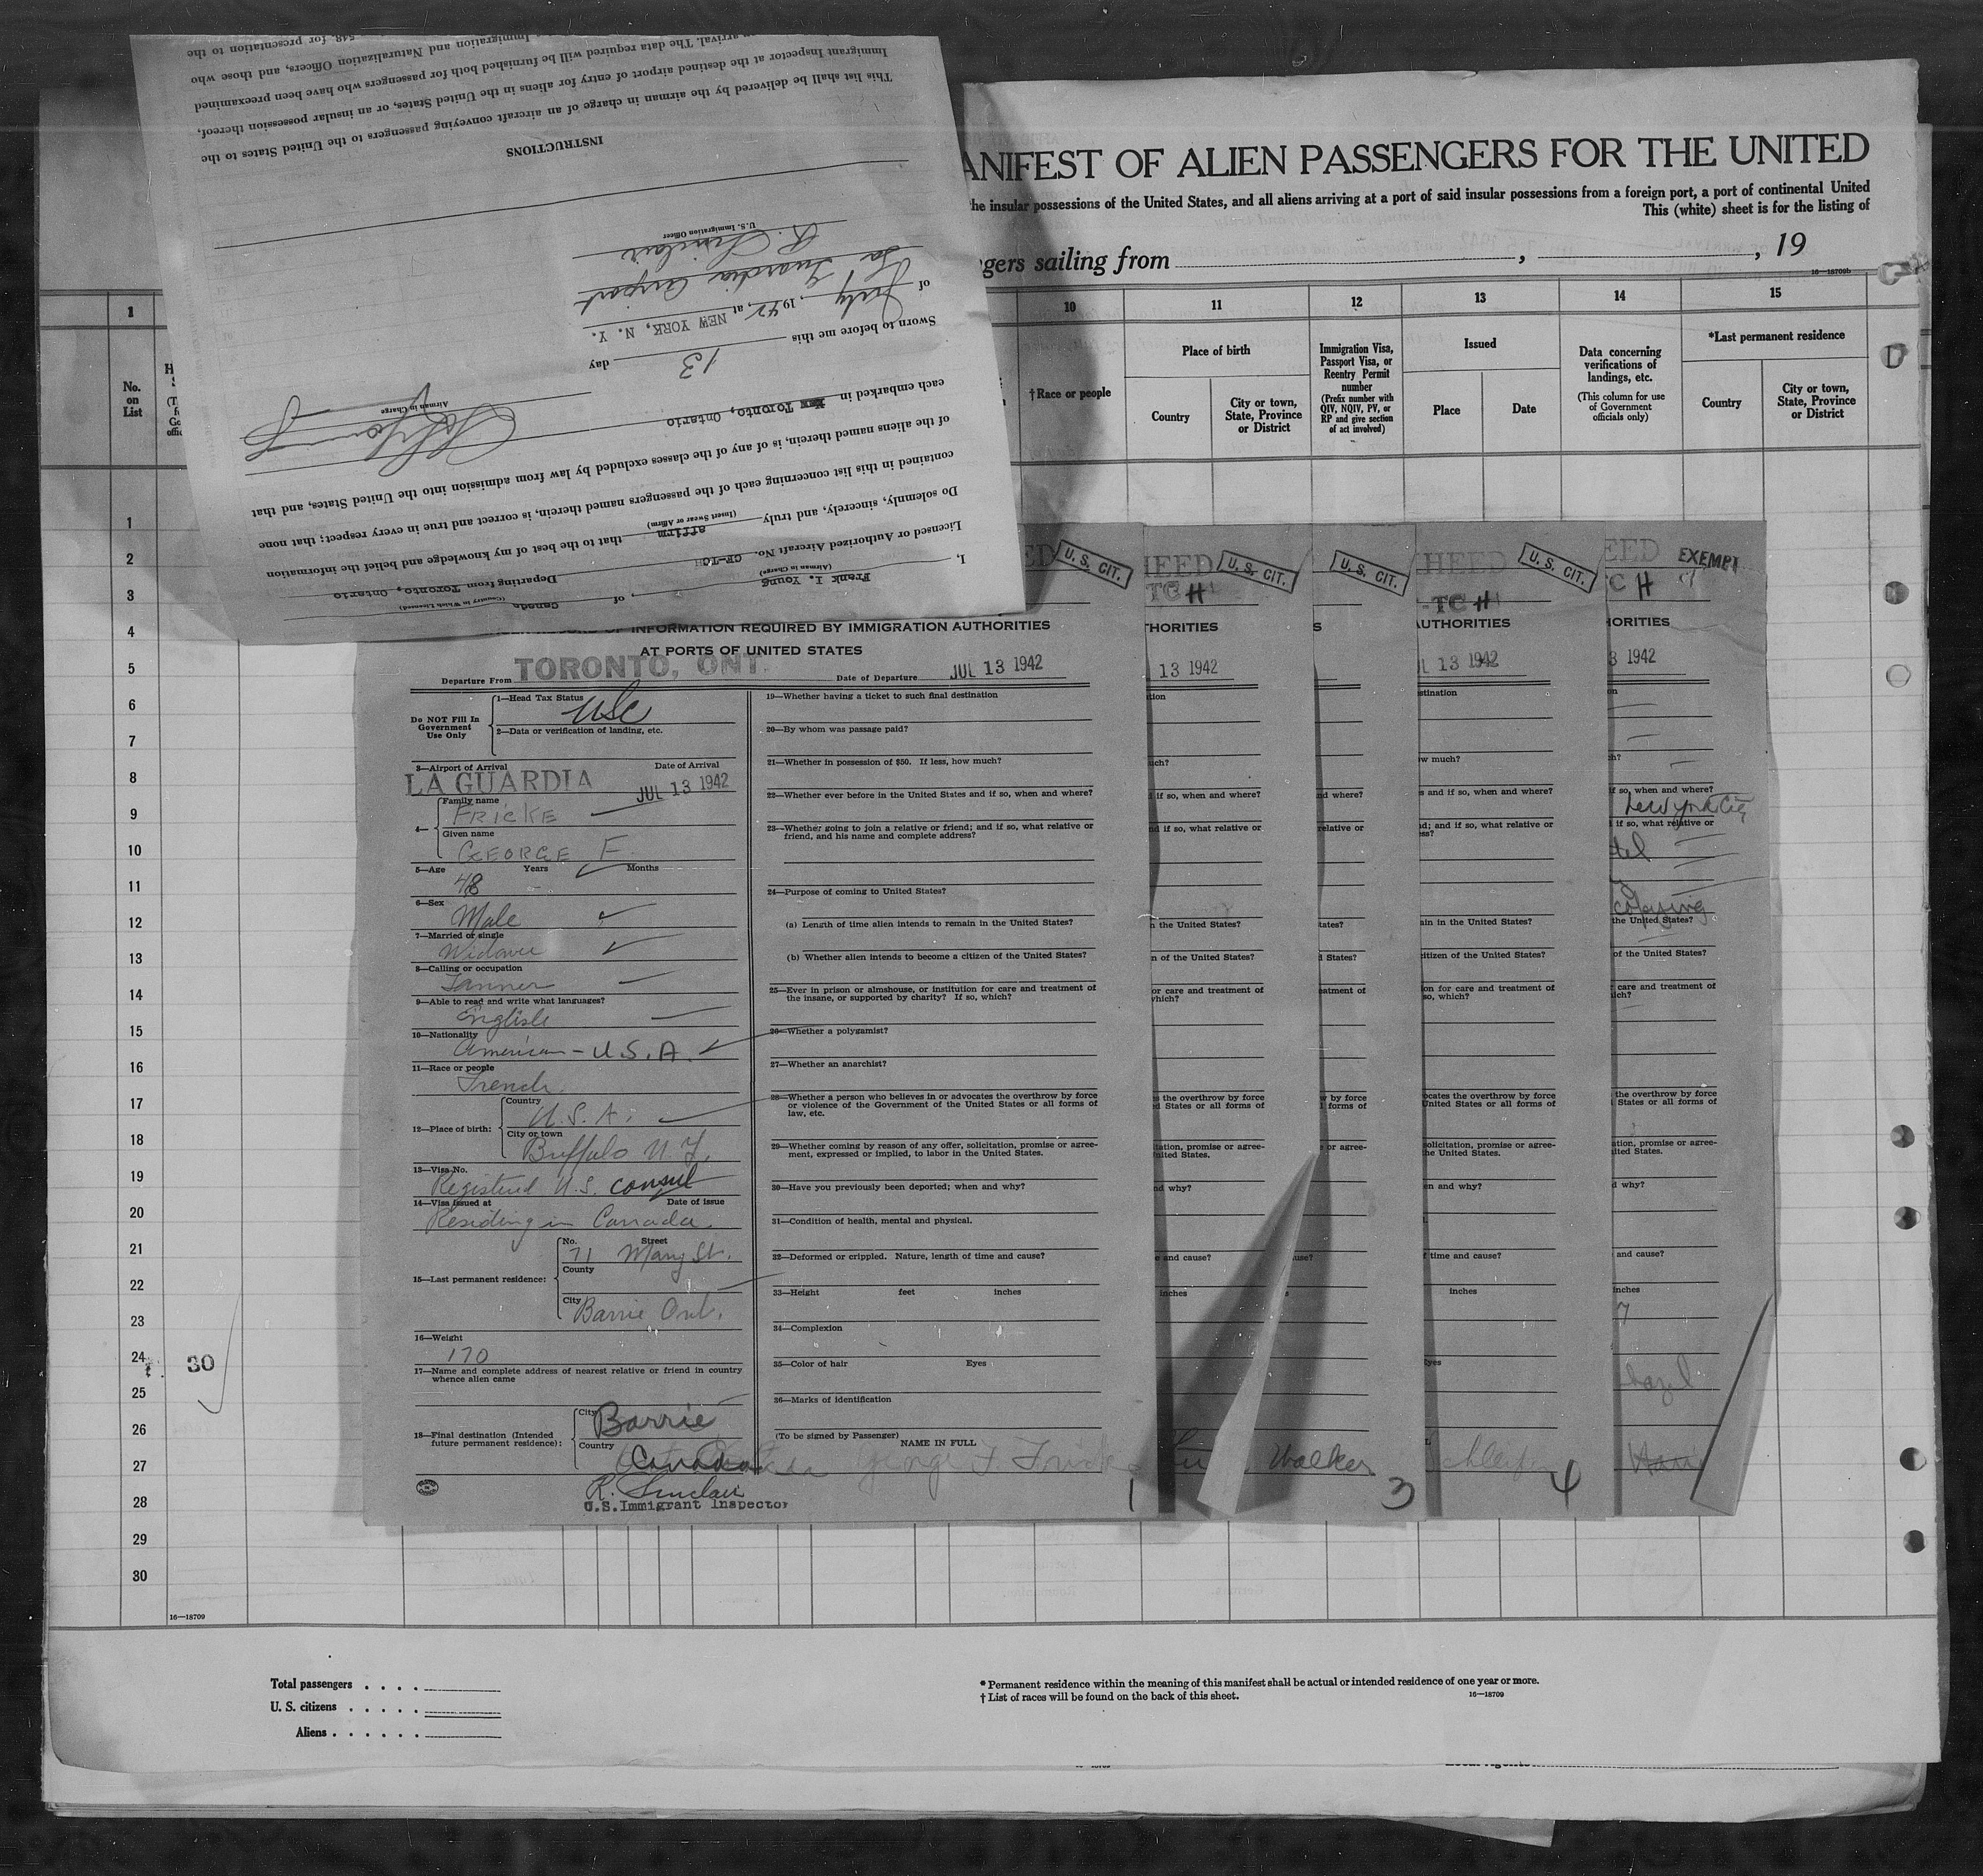 548, for presentation to the
arrival. The data required will be furnished both for passengers who have been preexamined
Immigration and Naturalization Officers, and those who
Immigrant Inspector at the destined airport of entry for aliens in the United States, or an insular possession thereof,
This list shall be delivered by the airman in charge of an aircraft conveying passengers to the United States to the
INSTRUCTIONS
U.S. Immigration Officer
R. Sinclair
La Guardia Airport
of July, 1942, at NEW YORK, N. Y.
Sworn to before me this 13 day
Airman in Charge
each embarked in Toronto, Ontario
of the aliens named therein, is of any of the classes excluded by law from admission into the United States, and that
contained in this list concerning each of the passengers named therein, is correct and true in every respect; that none
Do solemnly, sincerely, and truly affirm that to the best of my knowledge and belief the information
(Insert Swear or Affirm)
Licensed or Authorized Aircraft No. CF-TCH Departing from Toronto, Ontario
(Airman in Charge) (Country in Which Licensed)
I, Frank I. Young, of Canada
ANIFEST OF ALIEN PASSENGERS FOR THE UNITED
he insular possessions of the United States, and all aliens arriving at a port of said insular possessions from a foreign port, a port of continental United
This (white) sheet is for the listing of
gers sailing from , , 19
16—18709b
1 10 11 12 13 14 15
No. on List
†Race or people
Place of birth
Country
City or town, State, Province or District
Immigration Visa, Passport Visa, or Reentry Permit number
(Prefix number with QIV, NQIV, PV, or RP and give section of act involved)
Issued
Place
Date
Data concerning verifications of landings, etc.
(This column for use of Government officials only)
*Last permanent residence
Country
City or town, State, Province or District
1
2
3
4
5
6
7
8
9
10
11
12
13
14
15
16
17
18
19
20
21
22
23
24
30
25
26
27
28
29
30
16—18709
U. S. CIT.
INFORMATION REQUIRED BY IMMIGRATION AUTHORITIES
AT PORTS OF UNITED STATES
Departure From TORONTO, ONT. Date of Departure JUL 13 1942
Do NOT Fill In Government Use Only
1—Head Tax Status
USC
2—Data or verification of landing, etc.
3—Airport of Arrival Date of Arrival
LA GUARDIA JUL 13 1942
4— Family name
FRICKE
Given name
GEORGE F.
5—Age Years Months
48
6—Sex
Male
7—Married or single
Widower
8—Calling or occupation
Tanner
9—Able to read and write what languages?
English
10—Nationality
American - U.S.A.
11—Race or people
French
12—Place of birth: Country
U.S.A.
City or town
Buffalo N.Y.
13—Visa No.
Registered U.S. consul
14—Visa issued at Date of issue
Residing in Canada.
15—Last permanent residence: No. Street
71 Mary St.
County
City
Barrie Ont.
16—Weight
170
17—Name and complete address of nearest relative or friend in country whence alien came
18—Final destination (Intended future permanent residence): City
Barrie
Country
Canada
R. Sinclair
U.S. Immigrant Inspector
19—Whether having a ticket to such final destination
20—By whom was passage paid?
21—Whether in possession of $50. If less, how much?
22—Whether ever before in the United States and if so, when and where?
23—Whether going to join a relative or friend; and if so, what relative or friend, and his name and complete address?
24—Purpose of coming to United States?
(a) Length of time alien intends to remain in the United States?
(b) Whether alien intends to become a citizen of the United States?
25—Ever in prison or almshouse, or institution for care and treatment of the insane, or supported by charity? If so, which?
26—Whether a polygamist?
27—Whether an anarchist?
28—Whether a person who believes in or advocates the overthrow by force or violence of the Government of the United States or all forms of law, etc.
29—Whether coming by reason of any offer, solicitation, promise or agreement, expressed or implied, to labor in the United States.
30—Have you previously been deported; when and why?
31—Condition of health, mental and physical.
32—Deformed or crippled. Nature, length of time and cause?
33—Height feet inches
34—Complexion
35—Color of hair Eyes
36—Marks of identification
(To be signed by Passenger) NAME IN FULL
George F. Fricke
1
HEED U. S. CIT.
TC H
THORITIES
13 1942
U. S. CIT.
Walker
3
HEED U. S. CIT.
-TC H
AUTHORITIES
JUL 13 1942
4
EED EXEMPT
TC H
HORITIES
3 1942
New York City
hazel
Total passengers . . . .
U. S. citizens . . . . .
Aliens . . . . . .
* Permanent residence within the meaning of this manifest shall be actual or intended residence of one year or more.
† List of races will be found on the back of this sheet. 16—18709